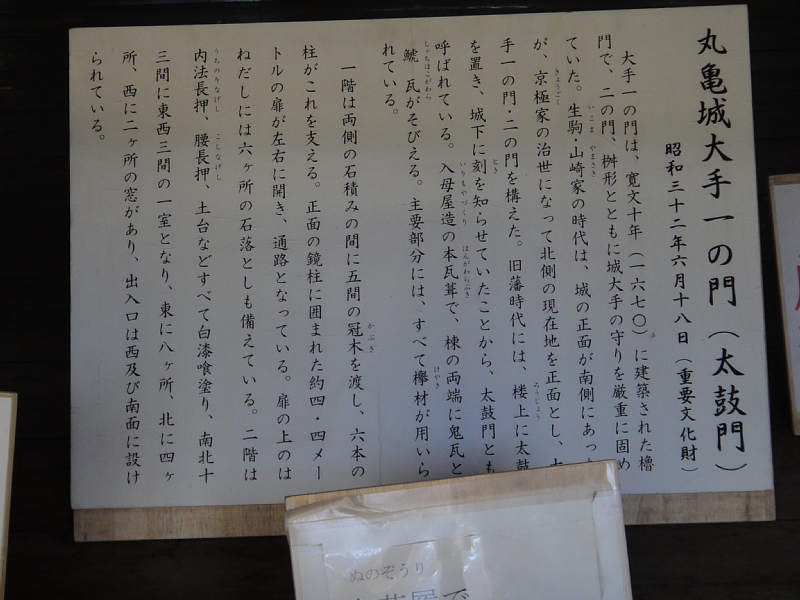 丸亀城大手一の門（太鼓門）
昭和三十二年六月十八日（重要文化財）
大手一の門は、寛文十年（一六七〇）に建築された櫓
門で、二の門、桝形とともに城大手の守りを厳重に固め
ていた。生駒・山崎家の時代は、城の正面が南側にあっ
が、京極家の治世になって北側の現在地を正面とし、
手一の門・二の門を構えた。旧藩時代には、楼上に太鼓
を置き、城下に刻を知らせていたことから、太鼓門とも
呼ばれている。入母屋造の本瓦葺で、棟の両端に鬼瓦と
鯱瓦がそびえる。主要部分には、すべて欅材が用いら
れている。
一階は両側の石積みの間に五間の冠木を渡し、六本の
柱がこれを支える。正面の鏡柱に囲まれた約四・四メー
トルの扉が左右に開き、通路となっている。扉の上のは
ねだしには六ヶ所の石落としも備えている。二階は
内法長押、腰長押、土台などすべて白漆喰塗り、南北十
三間に東西三間の一室となり、東に八ヶ所、北に四ヶ
所、西に二ヶ所の窓があり、出入口は西及び南面に設け
られている。
ぬのぞうり